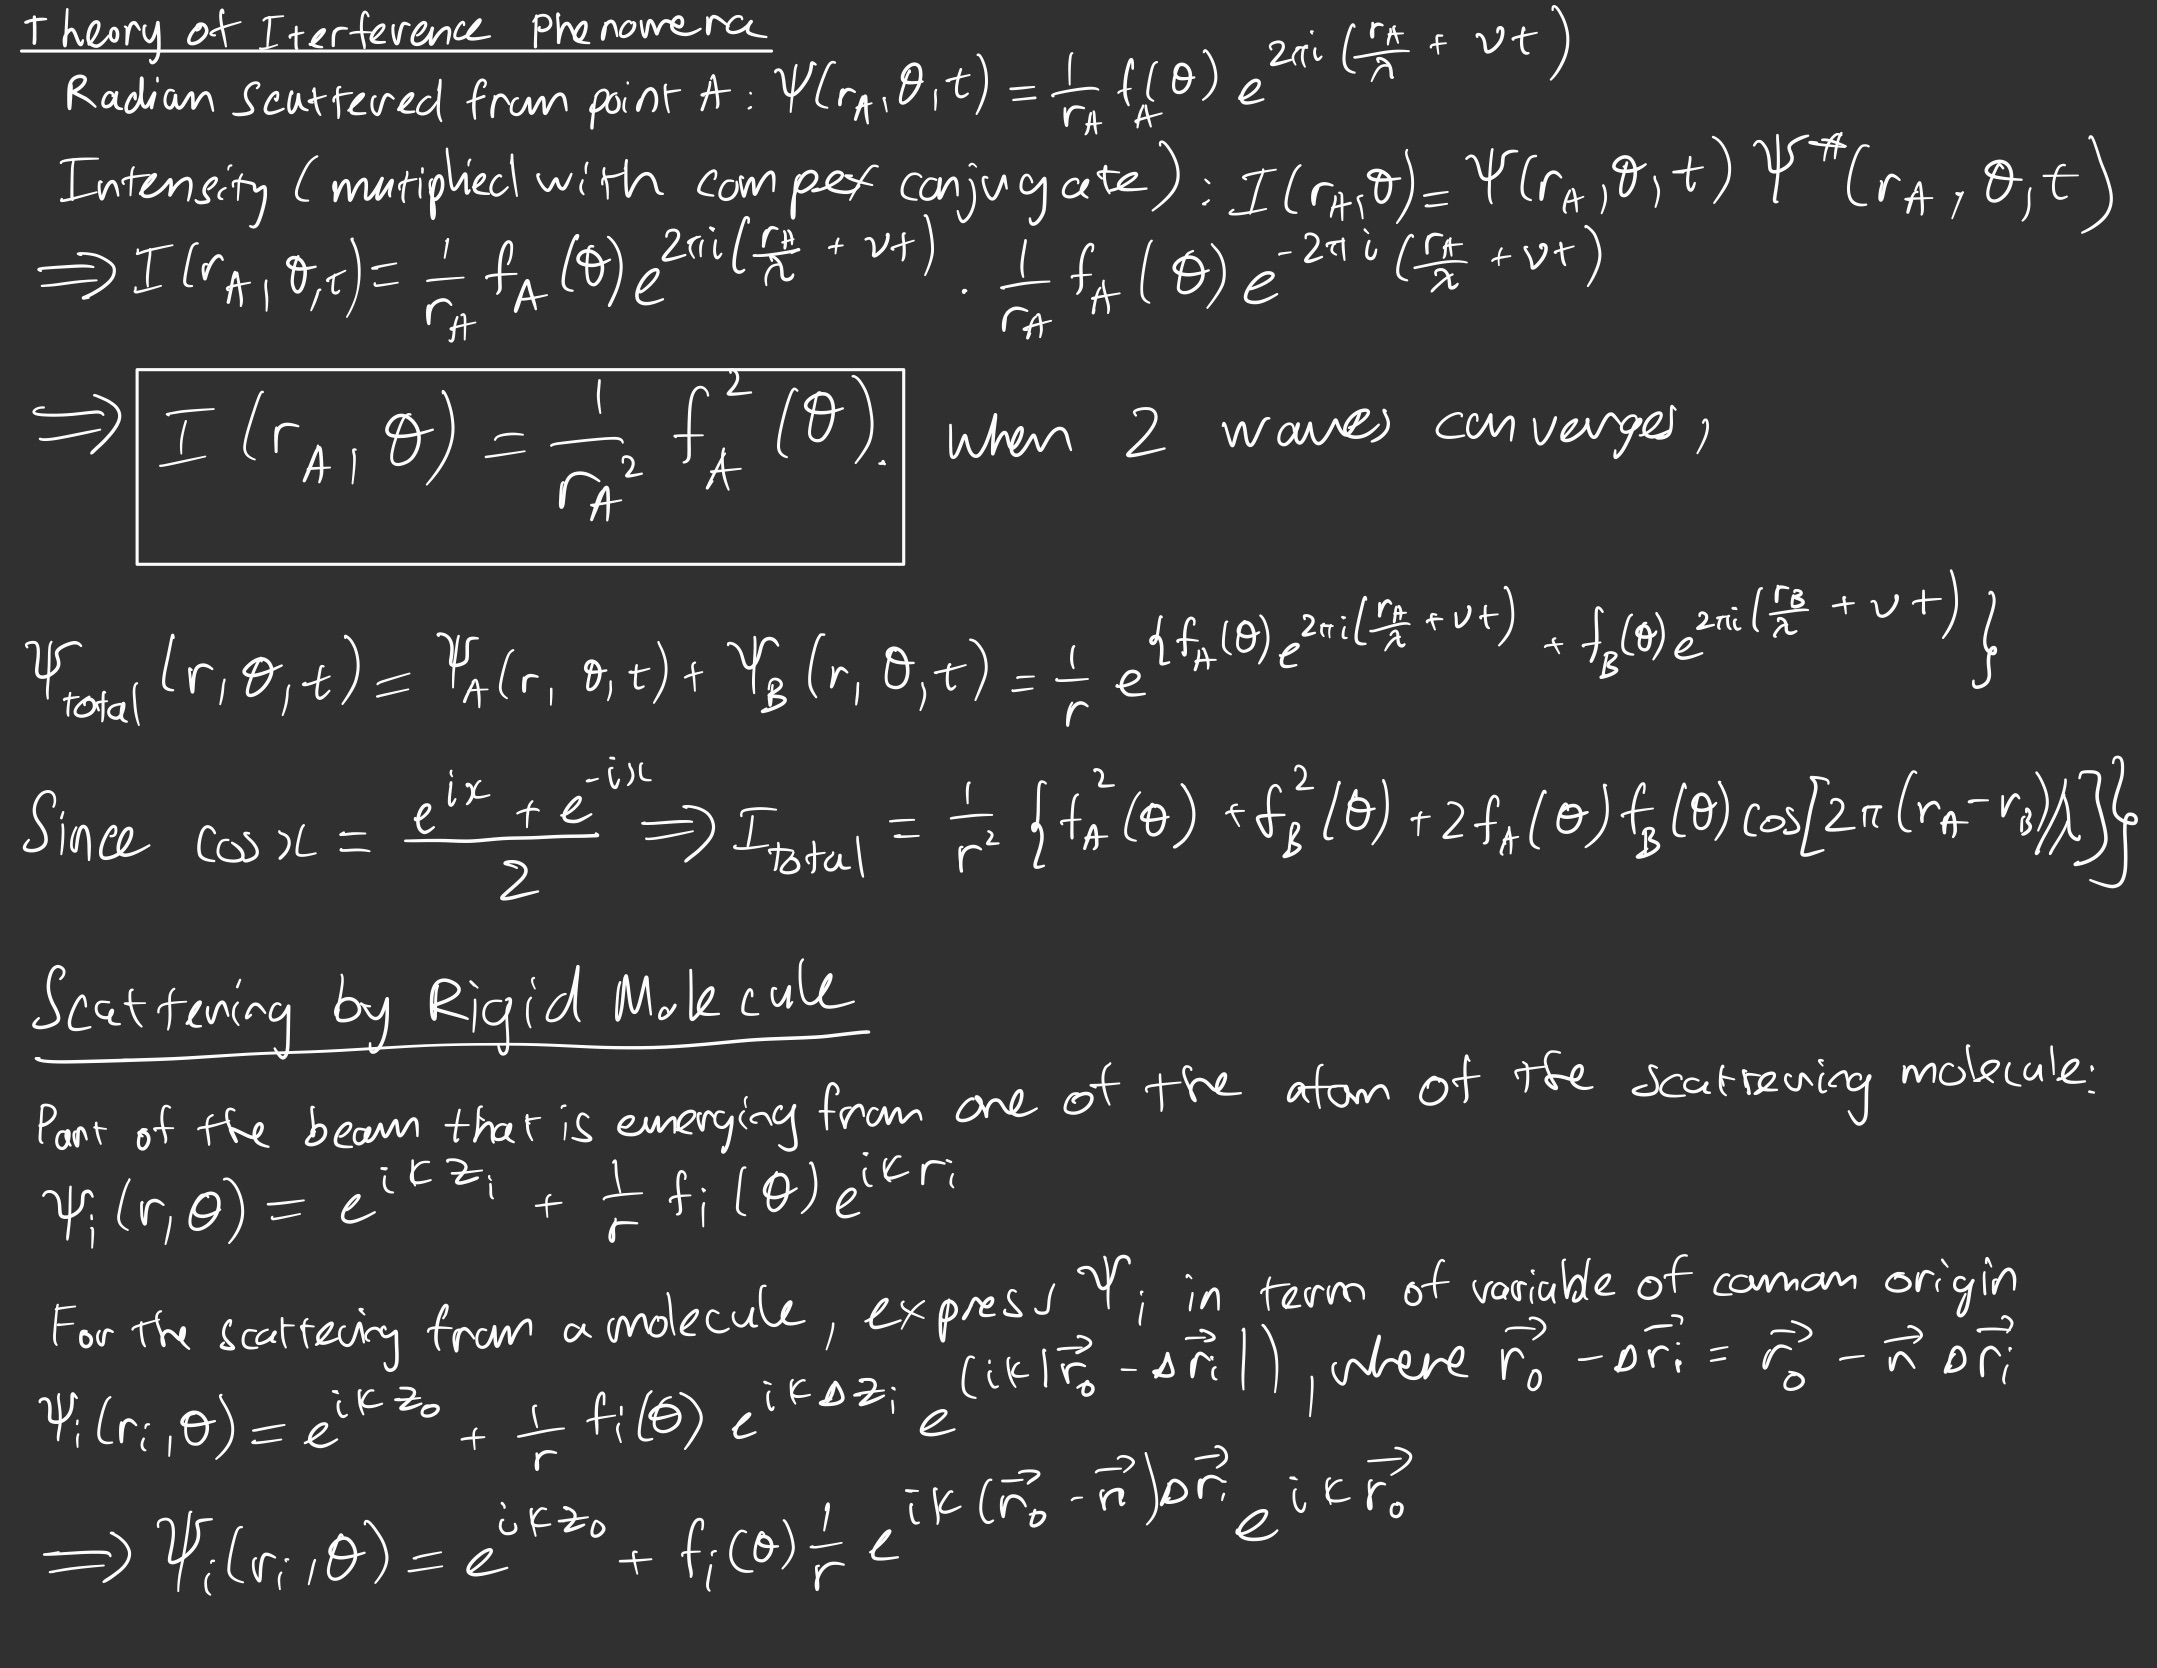 Theory of Iterference Phenomena
Radian scattered from point A: Ψ(r_A, θ, t) = 1/r_A f_A(θ) e^{2πi(r_A/λ + νt)}
Intensity (mutiplied with compex conjugate): I(r_A, θ) = Ψ(r_A, θ, t) Ψ*(r_A, θ, t)
⇒ I(r_A, θ, t) = 1/r_A f_A(θ) e^{2πi(r_A/λ + νt)} · 1/r_A f_A(θ) e^{-2πi(r_A/λ + νt)}
⇒ I(r_A, θ) = 1/r_A² f_A²(θ). When 2 waves converges,
Ψ_total(r, θ, t) = Ψ_A(r, θ, t) + Ψ_B(r, θ, t) = 1/r e^{{f_A(θ) e^{2πi(r_A/λ + νt)} + f_B(θ) e^{2πi(r_B/λ + νt)}}}
Since cos x = (e^{ix} + e^{-ix})/2 ⇒ I_total = 1/r² {f_A²(θ) + f_B²(θ) + 2f_A(θ) f_B(θ) cos[2π(r_A - r_B)/λ]}
Scattering by Rigid Molecule
Part of the beam that is emerging from one of the atom of the scattering molecule:
Ψ_i(r, θ) = e^{ikz_i} + 1/r f_i(θ) e^{ikr_i}
For the scattering from a molecule, express Ψ_i in term of variable of common origin
Ψ_i(r_i, θ) = e^{ikz_0} + 1/r f_i(θ) e^{ikΔz_i} e^{(ik|r⃗_0 - Δr⃗_i|)}, where r⃗_0 - Δr⃗_i = r⃗_0 - n⃗ Δr⃗_i
⇒ Ψ_i(r_i, θ) = e^{ikz_0} + f_i(θ) 1/r e^{ik(n⃗_0 - n⃗)Δr⃗_i} e^{ikr⃗_0}